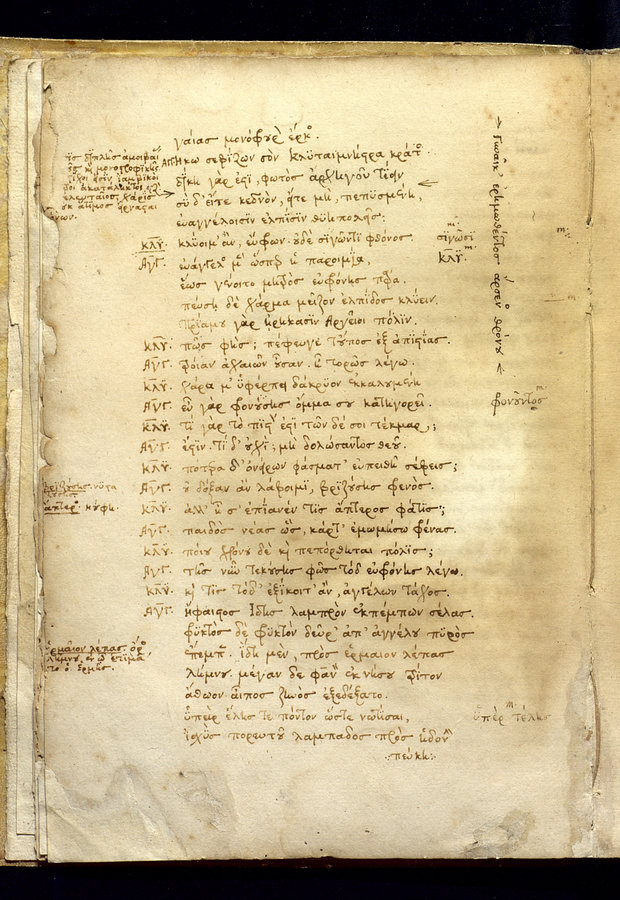 γαίας μονόφρουρ ἕρκος.
ΑΓΓ. Ἥκω σεβίζων σὸν κλυταιμνήστρα κράτος.
δίκη γάρ ἐστι, φωτὸς ἀρχηγοῦ τίειν
γυναῖκ' ἐρημωθέντος ἄρσενος θρόνου
σὺ δ' εἴτε κεδνὸν, εἴτε μὴ, πεπυσμένη,
εὐαγγέλοισιν ἐλπίσιν θυηπολεῖς;
ΚΛΥ. κλύοιμ' ἂν, εὔφρων· οὐδὲ σιγῶντι φθόνος
σιγώσῃ
ΑΓΓ. εὐάγγελος μ' ὥσπερ ἡ παροιμία,
ΚΛΥ.
ἕως γένοιτο μητρὸς εὐφρόνης πάρα.
πεύσῃ δὲ χάρμα μεῖζον ἐλπίδος κλύειν.
Πριάμου γὰρ ᾑρήκασιν Ἀργεῖοι πόλιν.
ΚΛΥ. πῶς φής; πέφευγε τοὔπος ἐξ ἀπιστίας.
ΑΓΓ. τροίαν ἀχαιῶν οὖσαν. ἦ τορῶς λέγω.
ΚΛΥ. χαρά μ' ὑφέρπει, δάκρυον ἐκκαλουμένη
ΑΓΓ. εὖ γὰρ φρονούσης ὄμμα σου κατηγορεῖ.
φρονοῦντος
ΚΛΥ. τί γὰρ τὸ πιστὸν ἐστὶ τῶνδέ σοι τέκμαρ,;
ΑΓΓ. ἔστιν. τί δ' οὐχί; μὴ δολώσαντος θεοῦ.
ΚΛΥ. πότερα δ' ὀνείρων φάσματ' εὐπειθῆ σέβεις;
ΑΓΓ. οὐ δόξαν ἂν λάβοιμι, βριζούσης φρενός.
ΚΛΥ. ἀλλ' ἦ σ' ἐπίανέν τις ἄπτερος φάτις;
ΑΓΓ. παιδὸς νέας ὣς, κάρτ' ἐμωμήσω φρένας.
ΚΛΥ. ποίου χρόνου δὲ καὶ πεπόρθηται πόλις;
ΑΓΓ. τῆς νῦν τεκούσης φῶς τόδ' εὐφρόνης λέγω.
ΚΛΥ. καὶ τίς τόδ' ἐξίκοιτ' ἂν, ἀγγέλων τάχος.
ΑΓΓ. ἥφαιστος Ἴδης λαμπρὸν ἐκπέμπων σέλας.
φρυκτὸς δὲ φρυκτὸν δεῦρ' ἀπ' ἀγγέλου πυρὸς
ἔπεμπεν. ἴδη μὲν, πρὸς ἑρμαῖον λέπας
λήμνου. μέγαν δὲ φανὸν ἐκ νήσου τρίτον
ἄθωον αἶπος ζηνὸς ἐξεδέξατο.
ὑπὲρ ἕλης τε πόντον ὥστε νωτίσαι,
ὑπὲρ τέλης
ἰσχὺς πορευτοῦ λαμπάδος πρὸς ἡδονὴν
πεύκη:
ἑρμαῖον λέπας. ὄρος
λήμνου, ἐν ᾧ ἐτιμᾶ
το ὁ ἑρμῆς.